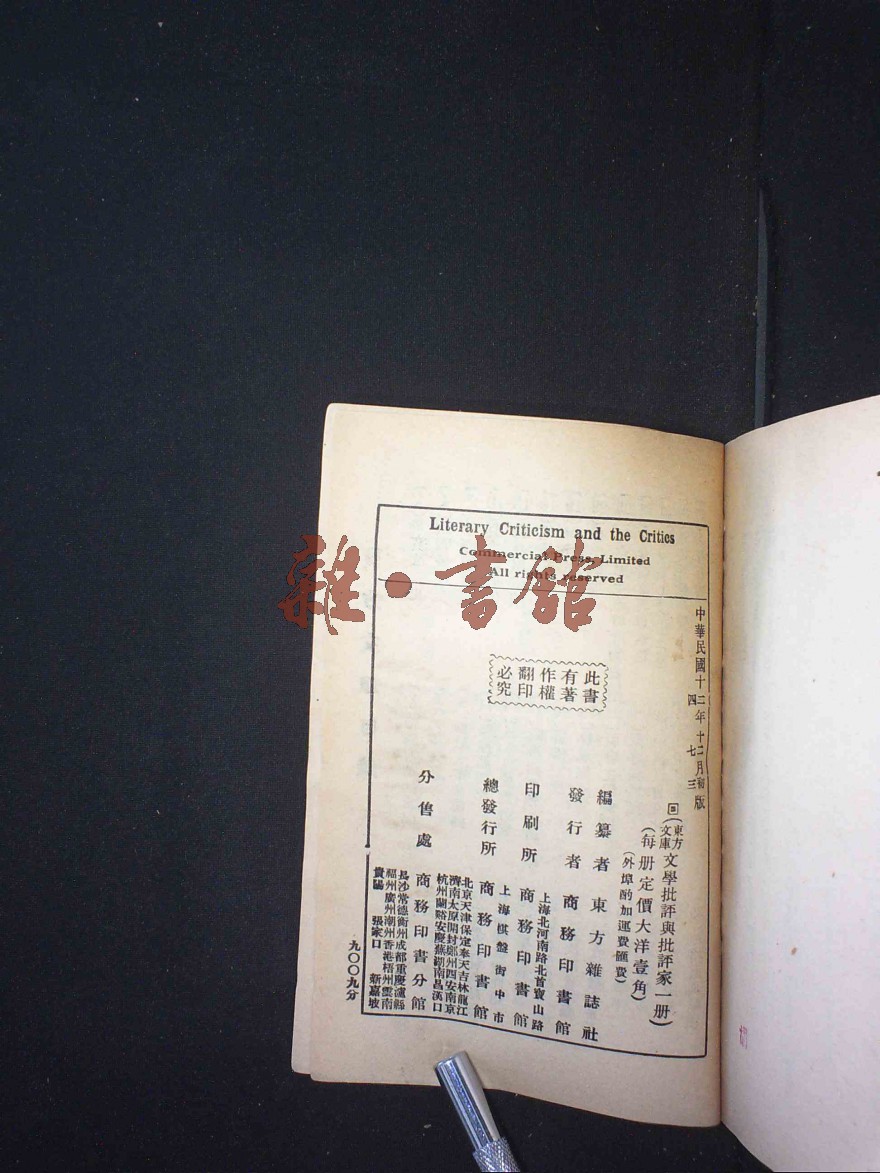 Literary Criticism and the Critics
Commercial Press, Limited
All rights reserved
雜·書館
此書
有著
作權
翻印
必究
中華民國十二年十二月初版
四 七 三
(東方文庫)文學批評與批評家一册
(每册定價大洋壹角)
(外埠酌加運費匯費)
編纂者 東方雜誌社
發行者 商務印書館
上海北河南路北首寶山路
印刷所 商務印書館
上海棋盤街中市
總發行所 商務印書館
北京天津保定奉天吉林龍江
濟南太原開封鄭州西安南京
杭州蘭谿安慶蕪湖南昌漢口
分售處 商務印書分館
長沙常德衡州成都重慶瀘縣
福州廣州潮州香港梧州雲南
貴陽 張家口 新嘉坡
九〇〇九分